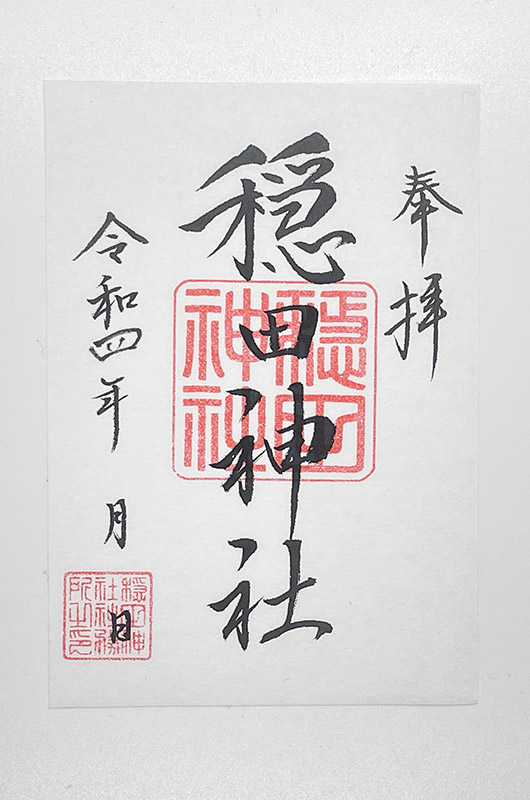 奉拝
穏田神社
穏田神社
令和四年 月 日
穏田神社神務所之印